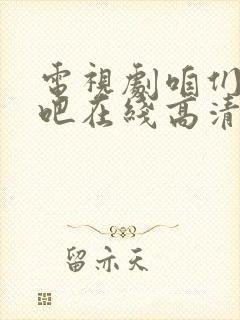 電視劇咱们
吧在綫高清
留亦天